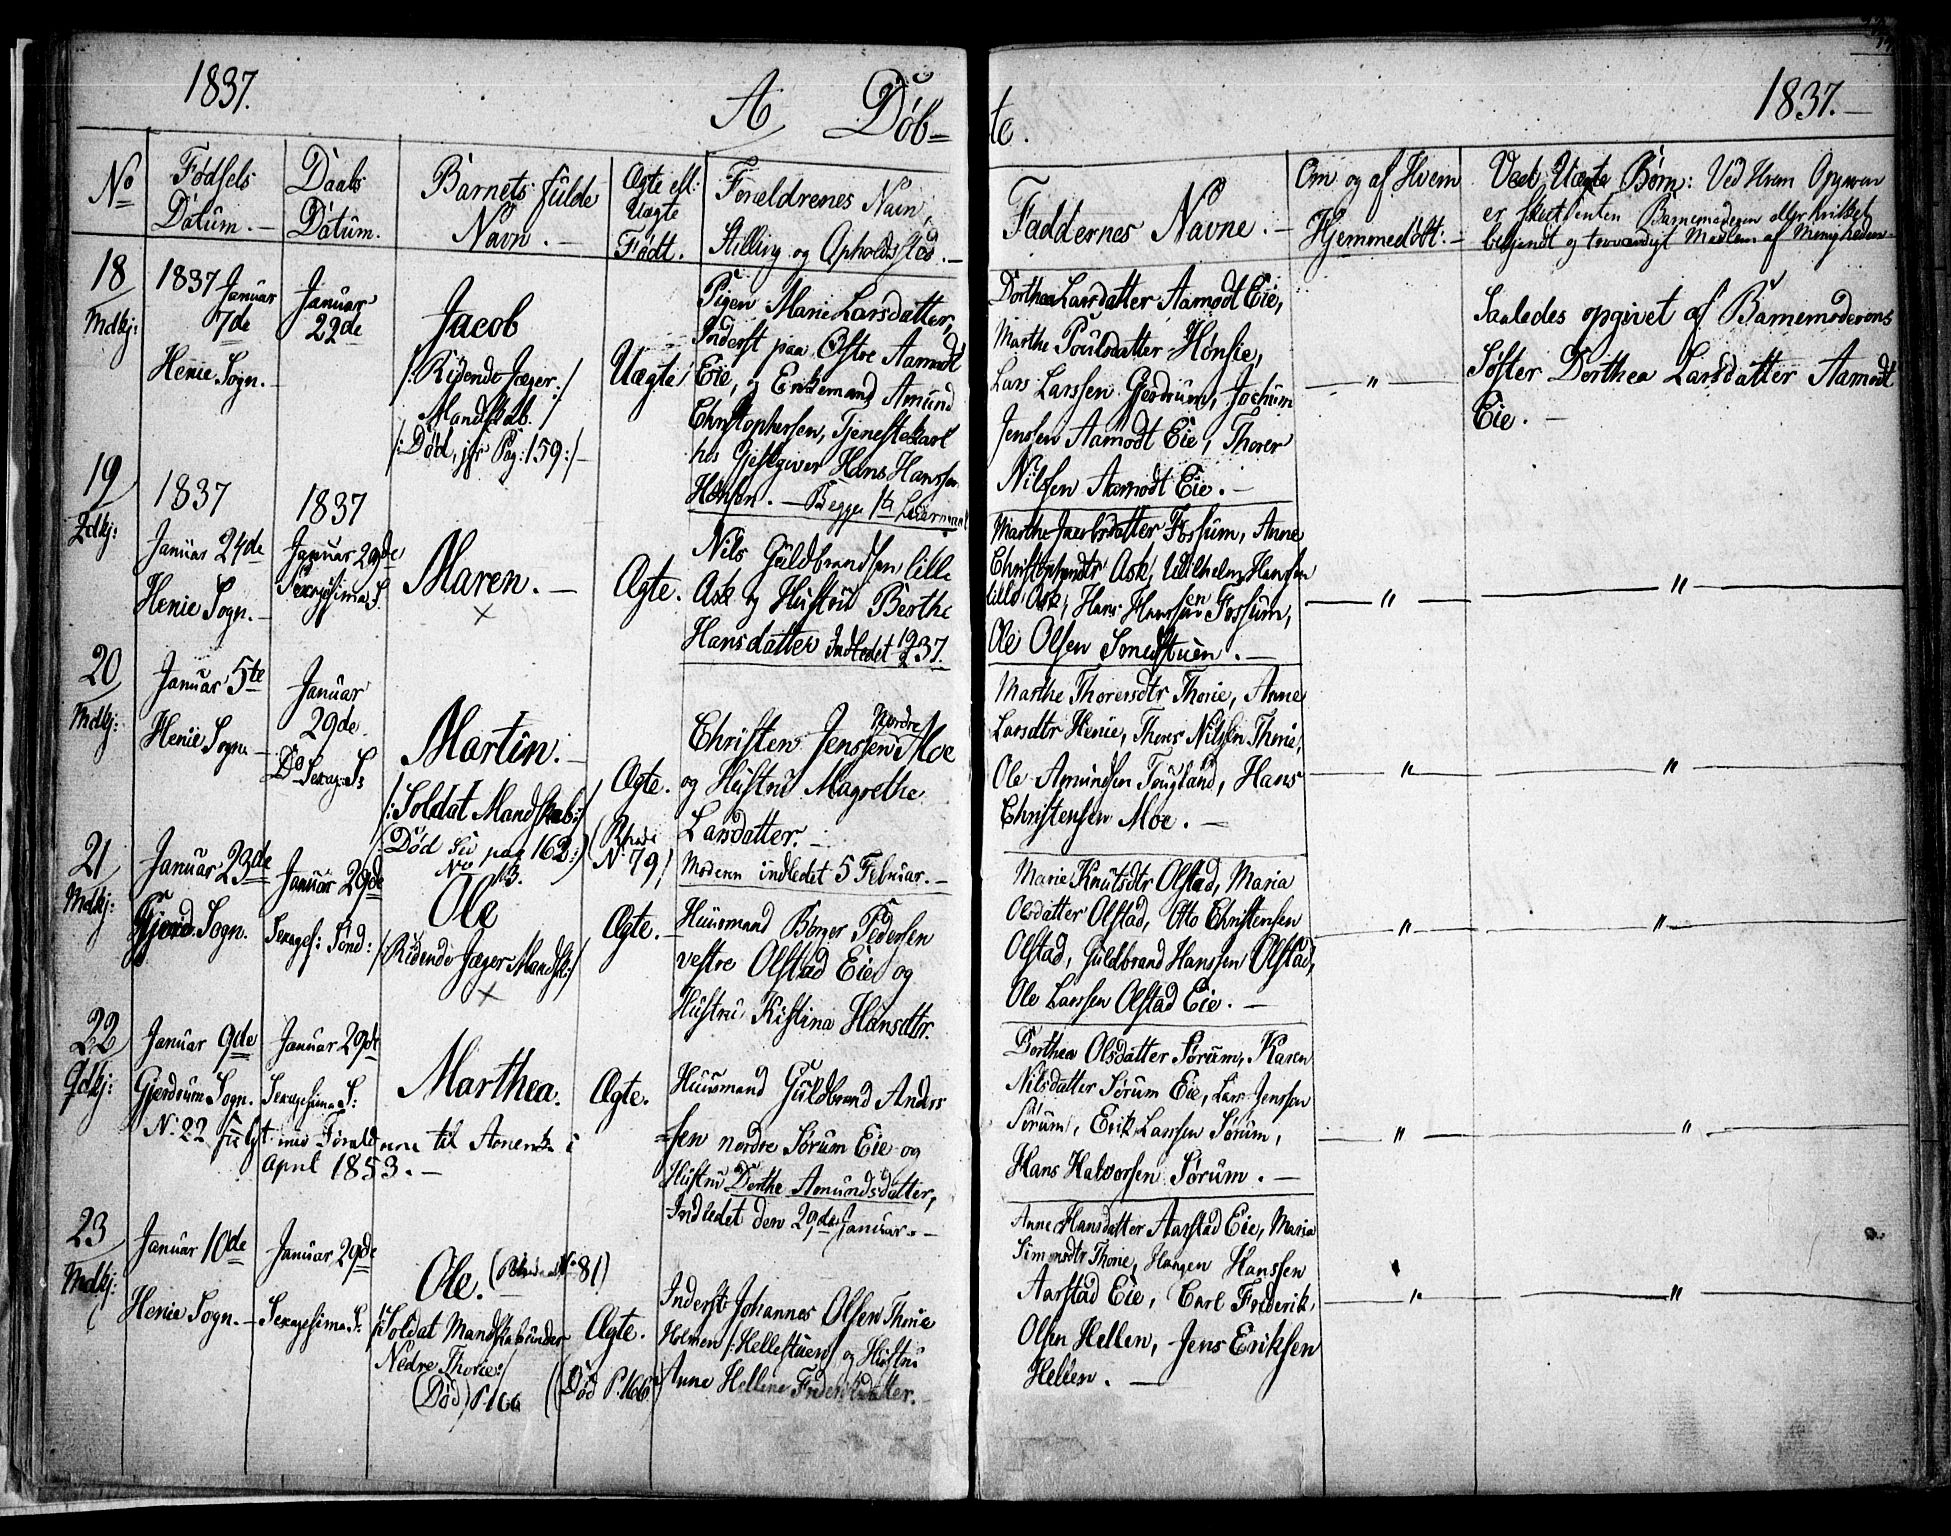 1837.
A Døb=
No
Fødsels Datum. –
Daabs Datum.
Barnets fulde Navn. –
Ægte ell: Uægte Født.
Forældrenes Navn,
Stilling og Opholdssted. –
18
Mdkj:
1837 Januar
7de
Henie Sogn. –
Januar
22de
Jacob
/: Ridende Jæger :/
Mandskab.
/: Død, jfr Pag: 159 :/ –
Uægte
Pigen Marie Larsdatter,
Inderst paa Østre Aamodt
Eie, og Enkemand Amund
Christophersen, Tjenestekarl
hos Gjestgiver Hans Hanssen
Hønsen. – Begges 1te Leiermaal
19
Qdkj:
1837
Januar 24de
Henie Sogn. –
1837
Januar 29de
Sexagesima S.
Maren. –
×
Ægte.
Nils Guldbrandsen lille
Ask og Hustru Berthe
Hansdatter Indledet 19/2 37.
20
Mdkj:
Januar 5te
Henie Sogn –
Januar
29de.
Do Sexag: S
Martin. –
/: Soldat Mandskab :/
Død Se pag 162 :/
No 13.
Ægte.
No 79
Christen Jenssen Nordre Moe
og Hustru Magrethe
Larsdatter. –
Moderen indledet 5 Februar. –
21
Mdkj:
Januar 23de
Gjerd. Sogn.
Januar 29de
Sexages: Sønd:
Ole
/: Ridende Jæger Mandsk :/
×
Ægte. –
Huusmand Børger Pedersen
vestre Olstad Eie og
Hustru Kistina Hansdtr.
22
Qdkj:
Januar 9de
Gjerdrum Sogn.
Januar 29de
Sexagesima S:
Marthea.
Ægte.
Huusmand Guldbrand Anders
=sen nordre Sørum Eie og
Hustru Dorthe Amundsdatter,
Indledet den 29de Januar. –
N. 22 fulgt med Forældrene til Amerika i
April 1853. –
23
Mdkj:
Januar 10de
Henie Sogn. –
Januar 29de
Sexagesima S.
Ole. No 81)
/: Soldat Mandskab under
Nedre Thorie :/
(Død) P. 166
Ægte.
(Død P. 166)
Inderst Johannes Olsen Thorie
Holmen /: Hellestuen / og Hustru
Anne Hellene Frederiksdatter. –
te.
1837. –
Faddernes Navne. –
Om og af Hvem
Hjemmedøbt: –
Ved Uægte Børn: Ved Hvem Opgaven
er skeet, enten Barnemoderen eller hvilket
bekjendt og troværdigt Medlem af Menigheden –
Dorthea Larsdatter Aamodt Eie,
Marthe Poulsdatter Hønsie,
Lars Larssen Gjerdrum, Jochum
Jenssen Aamodt Eie, Thorer
Nilssen Aamodt Eie. –
– " –
Saaledes opgivet af Barnemoderens
Søster Dorthea Larsdatter Aamodt
Eie. –
Marthe Jacobsdatter Fossum, Anne
Christophersdtr Ask, Wilhelm Hanssen
lille Ask, Hans Hanssen Fossum,
Ole Olsen Smedstuen. –
– " –
"
Marthe Thorersdtr Thorie, Anne
Larsdtr Henie, Thorer Nilssen Thorie,
Ole Amundsen Fougland, Hans
Christensen Moe. –
"
"
Marie Knutsdtr Olstad, Maria
Olsdatter Olstad, Otto Christensen
Olstad, Guldbrand Hanssen Olstad,
Ole Larssen Olstad Eie. –
"
"
Dorthea Olsdatter Sørum, Karen
Nilsdatter Sørum Eie, Lars Jenssen
Sørum, Erik Larssen Sørum,
Hans Halvorsen Sørum. –
"
"
Anne Hansdatter Aarstad Eie, Maria
Simensdtr Thorie, Hangen Hanssen
Aarstad Eie, Carl Frederik
Olsen Hellen, Jens Eriksen
Hellen. –
"
"